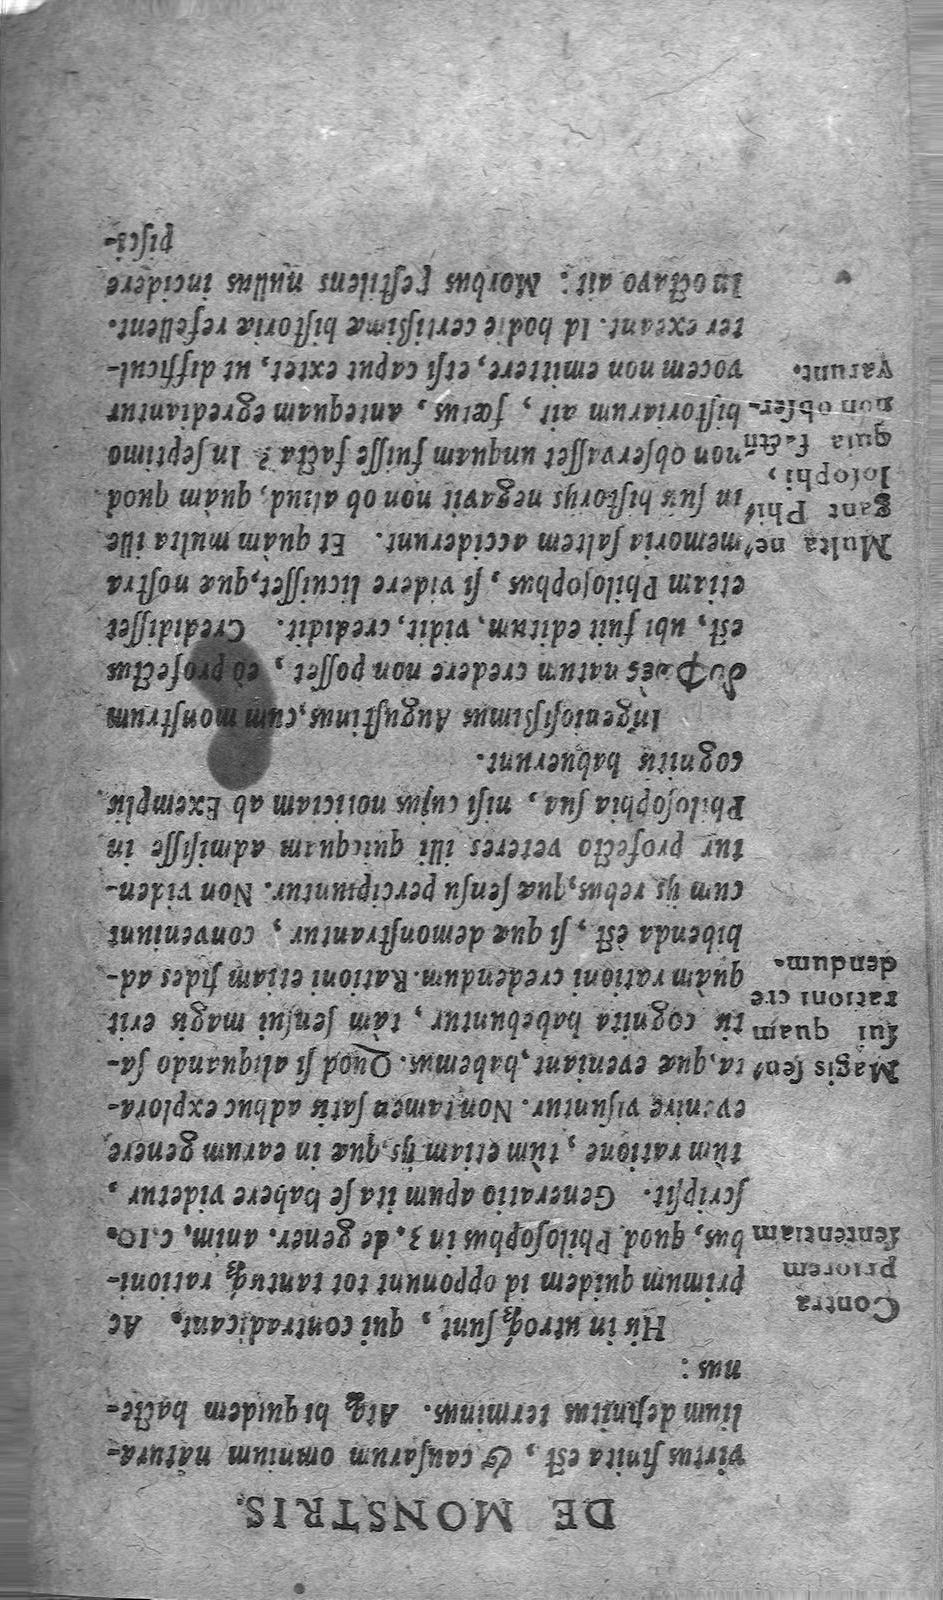 DE MONSTRIS.
virtus finita est, & causarum omnium natura-
lium definitus terminus. Atq; hi quidem hacte-
nus:
His in utroq; sunt, qui contradicant. Ac
primum quidem id opponunt tot tantisq; rationi-
bus, quod Philosophus in 3. de gener. anim. c. 10.
scripsit. Generatio apum ita se habere videtur,
tùm ratione, tùm etiam ijs, quæ in earum genere
evenire visuntur. Non tamen satis adhuc explora-
ta, quæ eveniant, habemus. Quod si aliquando sa-
tis cognita habebuntur, tàm sensui magis erit
quàm rationi credendum. Rationi etiam fides ad-
hibenda est, si quæ demonstrantur, conveniunt
cum ijs rebus, quæ sensu percipiuntur. Non viden-
tur profecto veteres illi quicquam admisisse in
Philosophia sua, nisi cujus noticiam ab Exemplis
cognitis habuerunt.
Ingeniosissimus Augustinus, cum monstrum
natum credere non posset, eò profectus
est, ubi fuit editum, vidit, credidit. Credidisset
etiam Philosophus, si videre licuisset, quæ nostra
memoria saltem acciderunt. Et quàm multa ille
in suis historijs negavit non ob aliud, quàm quod
non observasset unquam fuisse facta? In septimo
historiarum ait, fœtus, antequam egrediantur
vocem non emittere, etsi caput extet, ut difficul-
ter exeant. Id hodie certissimæ historiæ refellent.
In octavo ait: Morbus pestilens nullus incidere
pisci-
Contra
priorem
sententiam
Magis sen-
sui quam
rationi cre
dendum.
Multa ne-
gant Phi-
losophi,
quia factū
non obser-
varunt.